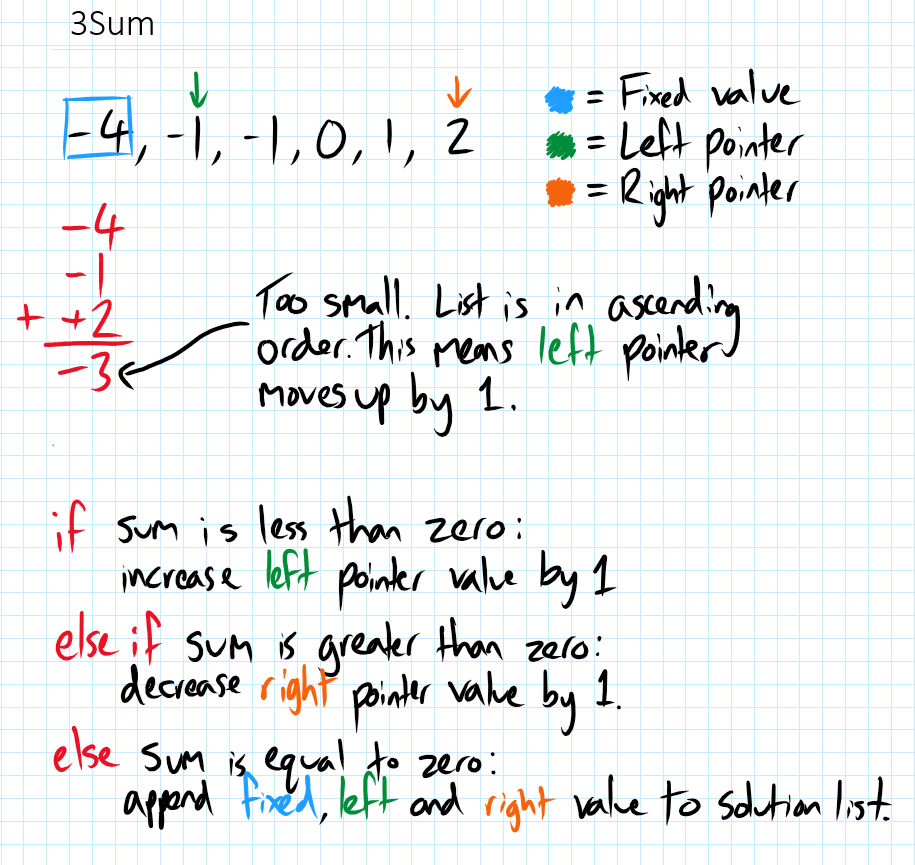 3Sum
-4, -1, -1, 0, 1, 2
= Fixed value
= Left pointer
= Right pointer
-4
-1
+ +2
-3
Too small. List is in ascending
order. This means left pointer
moves up by 1.
if sum is less than zero:
increase left pointer value by 1
else if sum is greater than zero:
decrease right pointer value by 1.
else sum is equal to zero:
append fixed, left and right value to solution list.